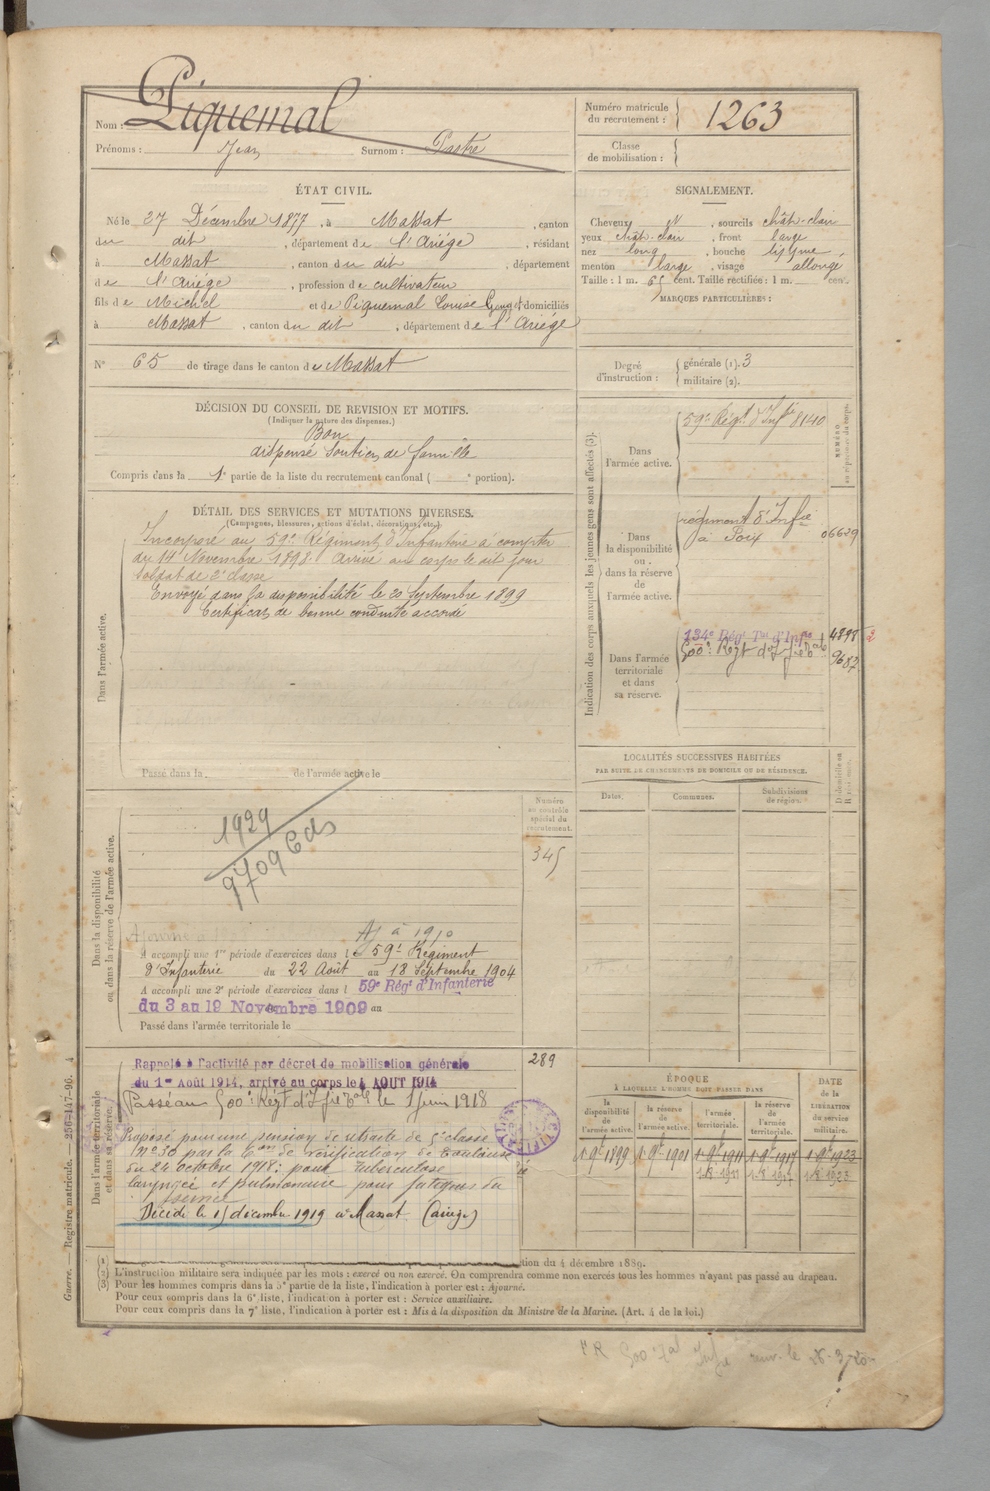 Nom : Piquemal
Prénoms : Jean Surnom : Pastre
Numéro matricule du recrutement : 1263
Classe de mobilisation :
ÉTAT CIVIL.
Né le 27 Décembre 1877, à Massat, canton
du dit, département de l'Ariège, résidant
à Massat, canton du dit, département
de l'Ariège, profession de cultivateur
fils de Michel et de Piquemal Louise domiciliés
à Massat, canton du dit, département de l'Ariège
N° 65 de tirage dans le canton de Massat
SIGNALEMENT.
Cheveux N, sourcils chât-clair
yeux chât-clair, front large
nez long, bouche moyenne
menton large, visage allongé
Taille : 1 m. 65 cent. Taille rectifiée : 1 m. cent.
MARQUES PARTICULIÈRES :
Degré d'instruction : générale (1). 3
militaire (2).
DÉCISION DU CONSEIL DE REVISION ET MOTIFS.
(Indiquer la nature des dispenses.)
Bon
dispensé soutien de famille
Compris dans la 1e partie de la liste du recrutement cantonal ( e portion).
DÉTAIL DES SERVICES ET MUTATIONS DIVERSES.
(Campagnes, blessures, actions d'éclat, décorations, etc.)
Dans l'armée active.
Incorporé au 59e Régiment d'Infanterie à compter
du 14 Novembre 1898. Arrivé au corps le dit jour
soldat de 2e classe
Envoyé dans la disponibilité le 20 Septembre 1899
Certificat de bonne conduite accordé
Passé dans la de l'armée active le
Indication des corps auxquels les jeunes gens sont affectés (3).
NUMÉRO au répertoire du corps.
Dans l'armée active.
59e Régt d'Infie 8140
Dans la disponibilité ou dans la réserve de l'armée active.
régiment d'Infie
à Foix 06629
Dans l'armée territoriale et dans sa réserve.
134e Régt Tal d'Infie 4898
500e Régt d'Infie Tale 9687
LOCALITÉS SUCCESSIVES HABITÉES
PAR SUITE DE CHANGEMENTS DE DOMICILE OU DE RÉSIDENCE.
Dates. Communes. Subdivisions de région. D domicile ou R résidence.
Dans la disponibilité ou dans la réserve de l'armée active.
Numéro au contrôle spécial du recrutement.
345
1929
9709 Cds
Aj à 1910
A accompli une 1re période d'exercices dans le 59e Régiment
d'Infanterie du 22 Août au 18 Septembre 1904
A accompli une 2e période d'exercices dans l 59e Régt d'Infanterie
du 3 au 19 Novembre 1909 au
Passé dans l'armée territoriale le
Dans l'armée territoriale et dans sa réserve.
289
Rappelé à l'activité par décret de mobilisation générale
du 1er Août 1914, arrivé au corps le 4 AOUT 1914
Passé au 500e Régt d'Infie Tale le 1 juin 1918
Proposé pour une pension de retraite de 5e classe
N° 30 par la Con de vérification de Toulouse
du 24 octobre 1918 : pour tuberculose
laryngée et pulmonaire pour fatigues du
service
Décédé le 15 décembre 1919 à Massat (Ariège)
ÉPOQUE
À LAQUELLE L'HOMME DOIT PASSER DANS
la disponibilité de l'armée active. la réserve de l'armée active. l'armée territoriale. la réserve de l'armée territoriale.
DATE de la LIBÉRATION du service militaire.
1 9bre 1899 1 9bre 1901 1 9bre 1911 1 9bre 1917 1 9bre 1923
1-8 1911 1-8 1917 1-8 1923
Guerre. Registre matricule. — 256-147-96. 4
(1)
(2)
(3)
tion du 4 décembre 1889.
L'instruction militaire sera indiquée par les mots : exercé ou non exercé. On comprendra comme non exercés tous les hommes n'ayant pas passé au drapeau.
Pour les hommes compris dans la 3e partie de la liste, l'indication à porter est : Ajourné.
Pour ceux compris dans la 6e liste, l'indication à porter est : Service auxiliaire.
Pour ceux compris dans la 7e liste, l'indication à porter est : Mis à la disposition du Ministre de la Marine. (Art. 4 de la loi.)
500e Tal Infie